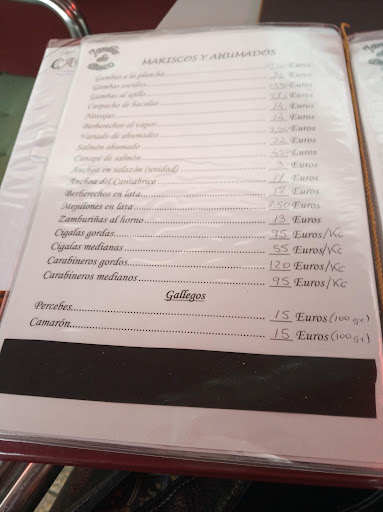 MARISCOS Y AHUMADOS
Gambas a la plancha Euros
Gambas cocidas Euros
Gambas al ajillo Euros
Carpacho de bacalao Euros
Navajas 14 Euros
Berberechos al vapor 16 Euros
Variado de ahumados Euros
Salmón ahumado 22 Euros
Canapé de salmón Euros
Anchoa en salazón (unidad) 3 Euros
Anchoa del Cantábrico Euros
Berberechos en lata 12 Euros
Mejillones en lata 8,50 Euros
Zamburiñas al horno 13 Euros
Cigalas gordas 95 Euros/KG
Cigalas medianas 55 Euros/KG
Carabineros gordos 120 Euros/KG
Carabineros medianos 95 Euros/KG
Gallegos
Percebes 15 Euros (100 gr)
Camarón 15 Euros (100 gr)